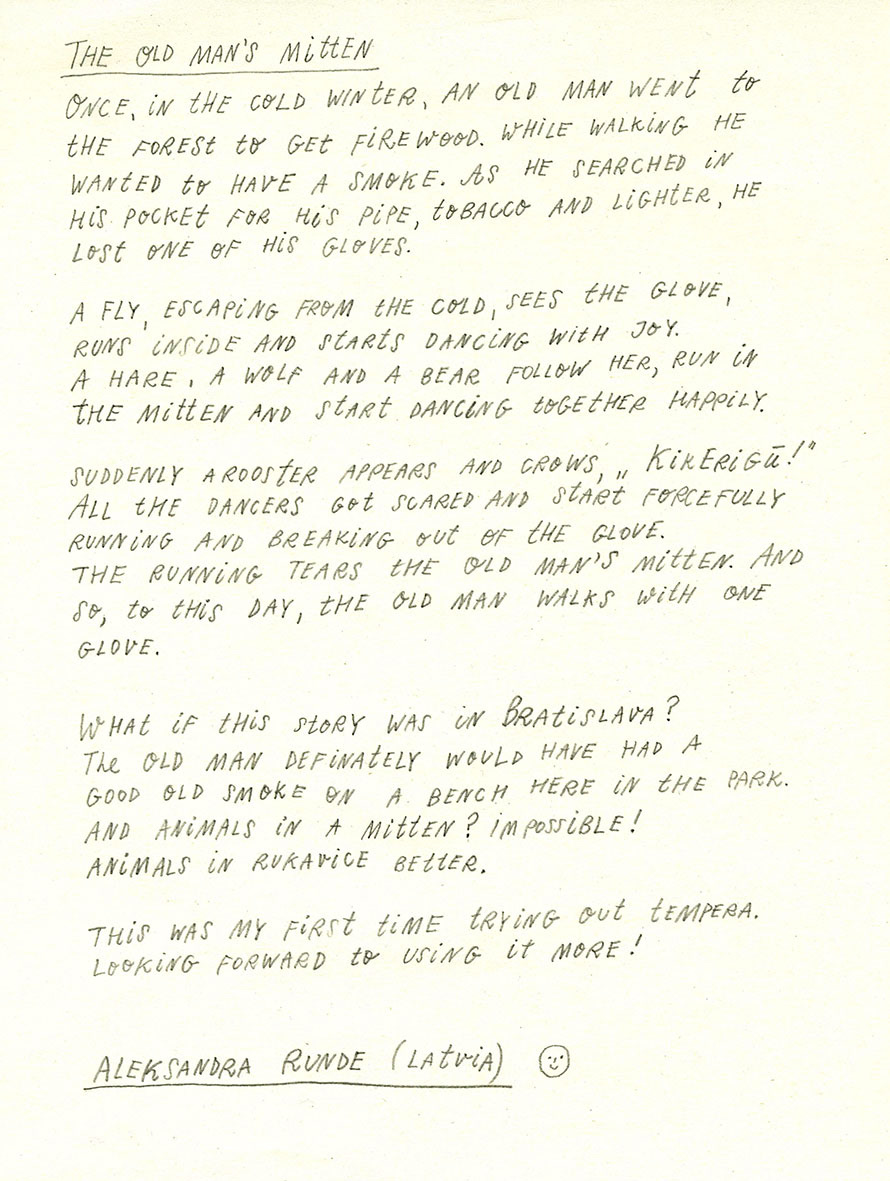 THE OLD MAN'S MITTEN
ONCE, IN THE COLD WINTER, AN OLD MAN WENT TO
THE FOREST TO GET FIREWOOD. WHILE WALKING HE
WANTED TO HAVE A SMOKE. AS HE SEARCHED IN
HIS POCKET FOR HIS PIPE, TOBACCO AND LIGHTER, HE
LOST ONE OF HIS GLOVES.
A FLY, ESCAPING FROM THE COLD, SEES THE GLOVE,
RUNS INSIDE AND STARTS DANCING WITH JOY.
A HARE, A WOLF AND A BEAR FOLLOW HER, RUN IN
THE MITTEN AND START DANCING TOGETHER HAPPILY.
SUDDENLY A ROOSTER APPEARS AND CROWS, „KIKERIGŪ!"
ALL THE DANCERS GOT SCARED AND START FORCEFULLY
RUNNING AND BREAKING OUT OF THE GLOVE.
THE RUNNING TEARS THE OLD MAN'S MITTEN. AND
SO, TO THIS DAY, THE OLD MAN WALKS WITH ONE
GLOVE.
WHAT IF THIS STORY WAS IN BRATISLAVA?
The OLD MAN DEFINATELY WOULD HAVE HAD A
GOOD OLD SMOKE ON A BENCH HERE IN THE PARK.
AND ANIMALS IN A MITTEN? IMPOSSIBLE!
ANIMALS IN RUKAVICE BETTER.
THIS WAS MY FIRST TIME TRYING OUT TEMPERA.
LOOKING FORWARD TO USING IT MORE!
ALEKSANDRA RUNDE (LATVIA)